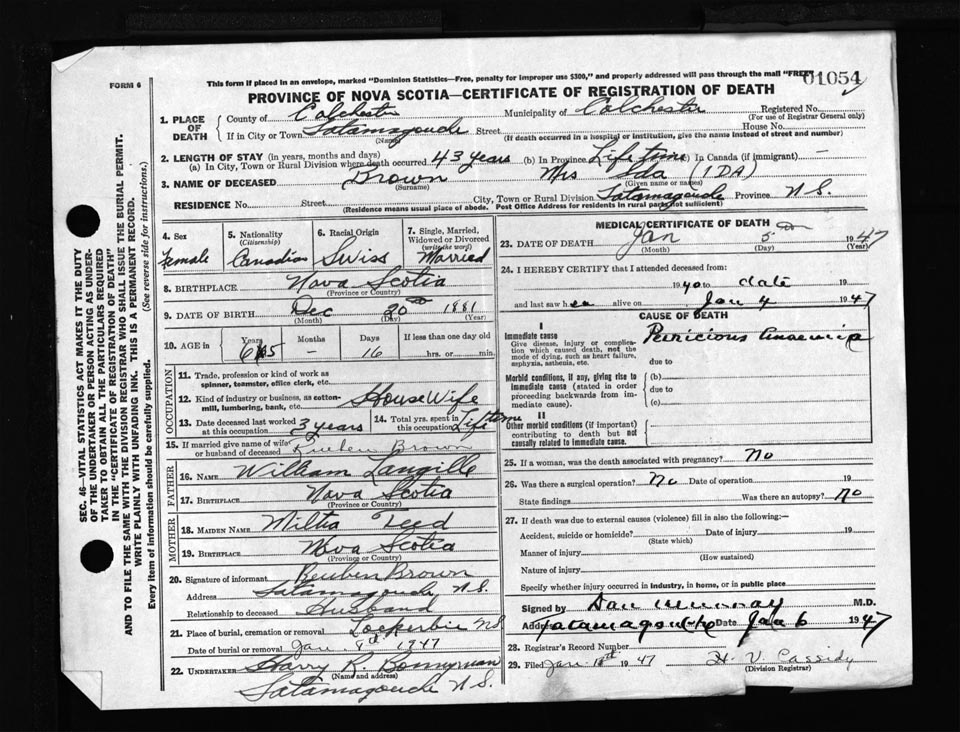 FORM 6
This form if placed in an envelope, marked "Dominion Statistics—Free, penalty for improper use $300," and properly addressed will pass through the mail "FREE"
01054
PROVINCE OF NOVA SCOTIA—CERTIFICATE OF REGISTRATION OF DEATH
1. PLACE OF DEATH
County of Colchester Municipality of Colchester Registered No.
(For use of Registrar General only)
If in City or Town Tatamagouche Street House No.
(Name) (If death occurred in a hospital or institution, give the name instead of street and number)
2. LENGTH OF STAY (in years, months and days)
(a) In City, Town or Rural Division where death occurred 43 years (b) In Province Lifetime (c) In Canada (if immigrant) —
3. NAME OF DECEASED Brown Mrs Ida (IDA)
(Surname) (Given name or names)
RESIDENCE No. Street City, Town or Rural Division Tatamagouche Province N.S.
(Residence means usual place of abode. Post Office Address for residents in rural parts not sufficient)
4. Sex
Female
5. Nationality
(Citizenship)
Canadian
6. Racial Origin
Swiss
7. Single, Married, Widowed or Divorced
(write the word)
Married
8. BIRTHPLACE Nova Scotia
(Province or Country)
9. DATE OF BIRTH Dec 20 1881
(Month) (Day) (Year)
10. AGE in Years Months Days If less than one day old
65 — 16 hrs. or min.
OCCUPATION
11. Trade, profession or kind of work as spinner, teamster, office clerk, etc.
12. Kind of industry or business, as cotton-mill, lumbering, bank, etc. House Wife
13. Date deceased last worked at this occupation 3 years
14. Total yrs. spent in this occupation Life time
15. If married give name of wife or husband of deceased Reuben Brown
FATHER
16. NAME William Langille
17. BIRTHPLACE Nova Scotia
(Province or Country)
MOTHER
18. MAIDEN NAME Miltia Teed
19. BIRTHPLACE Nova Scotia
(Province or Country)
20. Signature of informant Reuben Brown
Address Tatamagouche, N.S.
Relationship to deceased Husband
21. Place of burial, cremation or removal Lockerbie NS
Date of burial or removal Jan. 8th 1947
22. UNDERTAKER Harry R. Bonnyman
(Name and address)
Tatamagouche N.S.
MEDICAL CERTIFICATE OF DEATH
23. DATE OF DEATH Jan 5 1947
(Month) (Day) (Year)
24. I HEREBY CERTIFY that I attended deceased from:
1940 to date 19
and last saw her alive on Jan 4 1947
CAUSE OF DEATH
I
Immediate cause
Give disease, injury or complication which caused death, not the mode of dying, such as heart failure, asphyxia, asthenia, etc.
Pernicious Anaemia
due to
Morbid conditions, if any, giving rise to immediate cause (stated in order proceeding backwards from immediate cause).
(b)
due to
(c)
II
Other morbid conditions (if important) contributing to death but not causally related to immediate cause.
25. If a woman, was the death associated with pregnancy? No
26. Was there a surgical operation? No Date of operation 19
State findings Was there an autopsy? No
27. If death was due to external causes (violence) fill in also the following:—
Accident, suicide or homicide? Date of injury 19
(State which)
Manner of injury
(How sustained)
Nature of injury
Specify whether injury occurred in industry, in home, or in public place
Signed by Dan Murray M.D.
Address Tatamagouche Date Jan 6 1947
28. Registrar's Record Number
29. Filed Jan. 1947 H. V. Cassidy
(Division Registrar)
SEC. 46—VITAL STATISTICS ACT MAKES IT THE DUTY
OF THE UNDERTAKER OR PERSON ACTING AS UNDER-
TAKER TO OBTAIN ALL THE PARTICULARS REQUIRED
IN THE "CERTIFICATE OF REGISTRATION OF DEATH"
AND TO FILE THE SAME WITH THE DIVISION REGISTRAR WHO SHALL ISSUE THE BURIAL PERMIT.
WRITE PLAINLY WITH UNFADING INK. THIS IS A PERMANENT RECORD.
Every item of information should be carefully supplied. (See reverse side for instructions.)